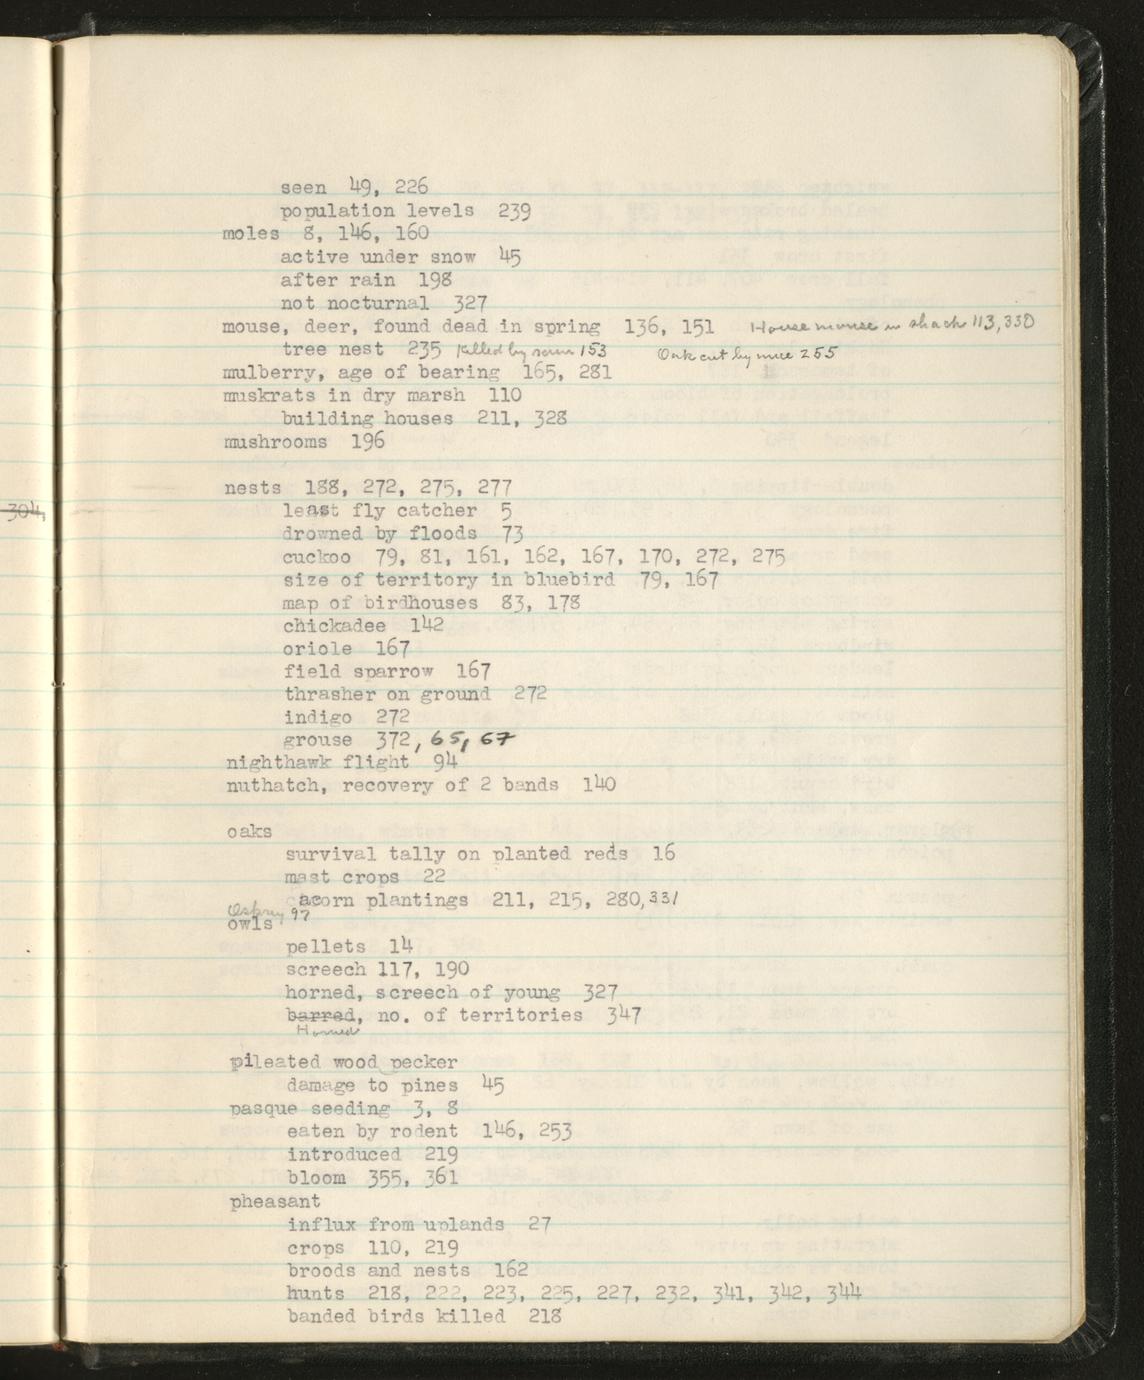 seen 49, 226
population levels 239
moles 8, 146, 160
active under snow 45
after rain 198
not nocturnal 327
mouse, deer, found dead in spring 136, 151 House mouse in shack 113, 330
tree nest 235 Killed by 153 Oak cut by mice 255
mulberry, age of bearing 165, 281
muskrats in dry marsh 110
building houses 211, 328
mushrooms 196
nests 188, 272, 275, 277
304,
least fly catcher 5
drowned by floods 73
cuckoo 79, 81, 161, 162, 167, 170, 272, 275
size of territory in bluebird 79, 167
map of birdhouses 83, 178
chickadee 142
oriole 167
field sparrow 167
thrasher on ground 272
indigo 272
grouse 372, 65, 67
nighthawk flight 94
nuthatch, recovery of 2 bands 140
oaks
survival tally on planted reds 16
mast crops 22
acorn plantings 211, 215, 280, 331
Osprey 97
owls
pellets 14
screech 117, 190
horned, screech of young 327
barred, no. of territories 347
Horned
pileated wood pecker
damage to pines 45
pasque seeding 3, 8
eaten by rodent 146, 253
introduced 219
bloom 355, 361
pheasant
influx from uplands 27
crops 110, 219
broods and nests 162
hunts 218, 222, 223, 225, 227, 232, 341, 342, 344
banded birds killed 218